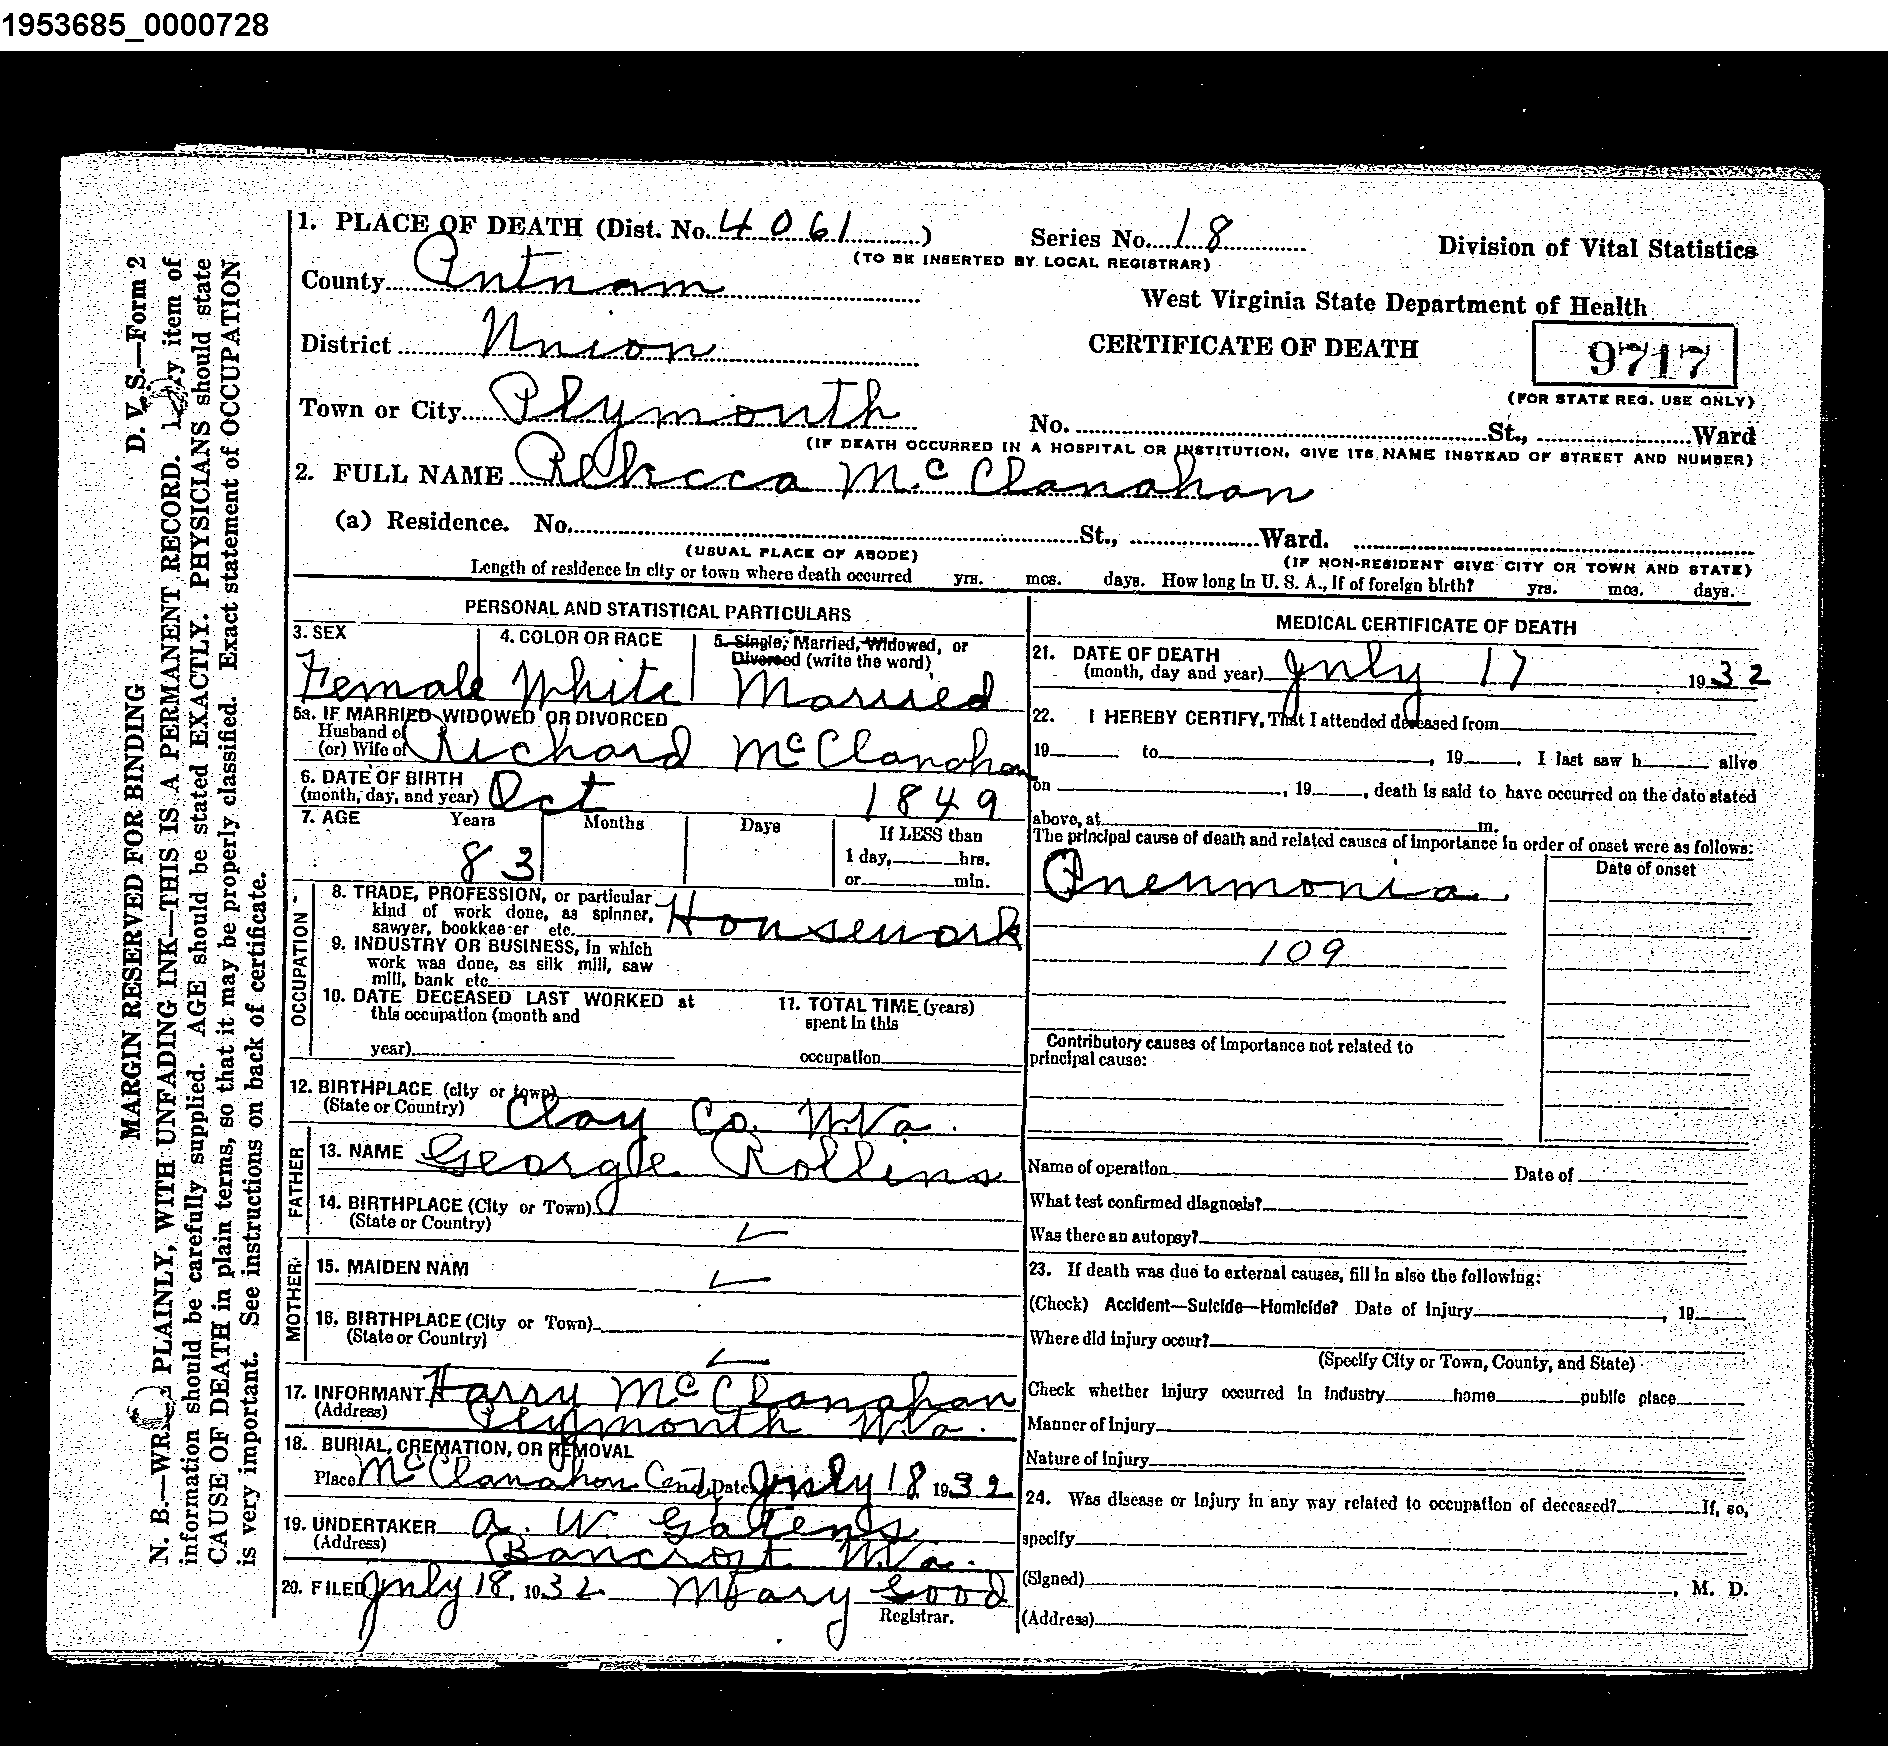 1953685_0000728
1. PLACE OF DEATH (Dist. No. 4061 )
Series No. 18
(TO BE INSERTED BY LOCAL REGISTRAR)
Division of Vital Statistics
County Putnam
West Virginia State Department of Health
District Union
CERTIFICATE OF DEATH
9717
(FOR STATE REG. USE ONLY)
Town or City Plymouth
No. St., Ward
(IF DEATH OCCURRED IN A HOSPITAL OR INSTITUTION, GIVE ITS NAME INSTEAD OF STREET AND NUMBER)
2. FULL NAME Rebecca McClanahan
(a) Residence. No. St., Ward.
(USUAL PLACE OF ABODE) (IF NON-RESIDENT GIVE CITY OR TOWN AND STATE)
Length of residence in city or town where death occurred yrs. mos. days. How long in U. S. A., if of foreign birth? yrs. mos. days.
PERSONAL AND STATISTICAL PARTICULARS
3. SEX 4. COLOR OR RACE 5. Single, Married, Widowed, or
Divorced (write the word)
Female White Married
5a. IF MARRIED, WIDOWED OR DIVORCED
Husband of
(or) Wife of Richard McClanahan
6. DATE OF BIRTH
(month, day, and year) Oct 1849
7. AGE Years Months Days If LESS than
1 day, hrs.
or min.
83
OCCUPATION
8. TRADE, PROFESSION, or particular
kind of work done, as spinner,
sawyer, bookkee er etc. Housework
9. INDUSTRY OR BUSINESS, in which
work was done, as silk mill, saw
mill, bank etc
10. DATE DECEASED LAST WORKED at
this occupation (month and
year)
11. TOTAL TIME (years)
spent in this
occupation
12. BIRTHPLACE (city or town)
(State or Country) Clay Co. W.Va.
FATHER
13. NAME George Rollins
14. BIRTHPLACE (City or Town)
(State or Country)
MOTHER
15. MAIDEN NAM
16. BIRTHPLACE (City or Town)
(State or Country)
17. INFORMANT Harry McClanahan
(Address) Plymouth W.Va.
18. BURIAL, CREMATION, OR REMOVAL
Place McClanahan Cem. Date July 18 1932
19. UNDERTAKER A. W. Gatens
(Address) Bancroft W.Va.
20. FILED July 18, 1932 Mary Good
Registrar.
MEDICAL CERTIFICATE OF DEATH
21. DATE OF DEATH
(month, day and year) July 17 1932
22. I HEREBY CERTIFY, That I attended deceased from
19 to , 19 . I last saw h alive
on , 19 , death is said to have occurred on the date stated
above, at m.
The principal cause of death and related causes of importance in order of onset were as follows:
Date of onset
Pneumonia
109
Contributory causes of importance not related to
principal cause:
Name of operation Date of
What test confirmed diagnosis?
Was there an autopsy?
23. If death was due to external causes, fill in also the following:
(Check) Accident—Suicide—Homicide? Date of injury , 19
Where did injury occur?
(Specify City or Town, County, and State)
Check whether injury occurred in industry home public place
Manner of injury
Nature of injury
24. Was disease or injury in any way related to occupation of deceased? If, so,
specify
(Signed) , M. D.
(Address)
D. V. S.—Form 2
MARGIN RESERVED FOR BINDING
N. B.—WRITE PLAINLY, WITH UNFADING INK—THIS IS A PERMANENT RECORD. Every item of
information should be carefully supplied. AGE should be stated EXACTLY. PHYSICIANS should state
CAUSE OF DEATH in plain terms, so that it may be properly classified. Exact statement of OCCUPATION
is very important. See instructions on back of certificate.